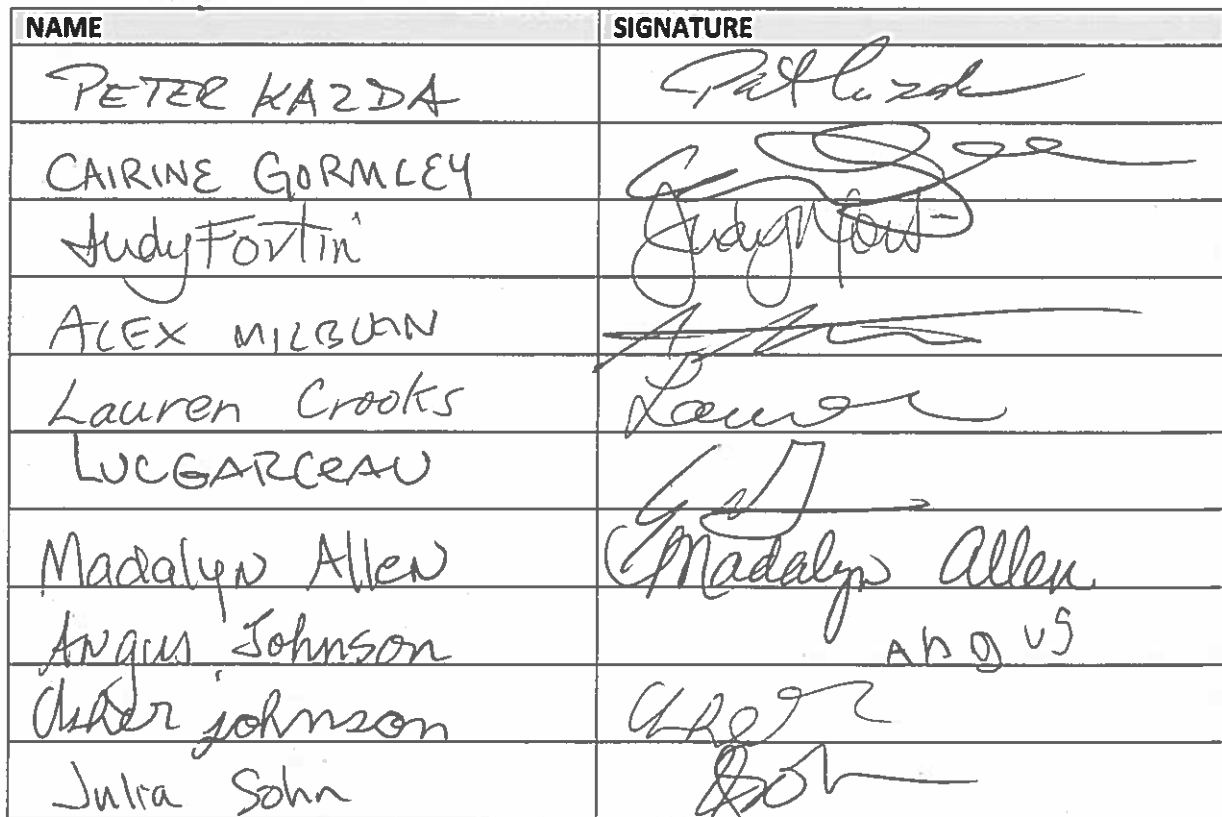 NAME SIGNATURE
PETER KAZDA
CAIRINE GORMLEY
Judy Fortin
ALEX MILBURN
Lauren Crooks Lauren
LUC GARCEAU
Madalyn Allen Madalyn Allen
Angus Johnson Angus
Asher johnson Asher
Julia Sohn Sohn